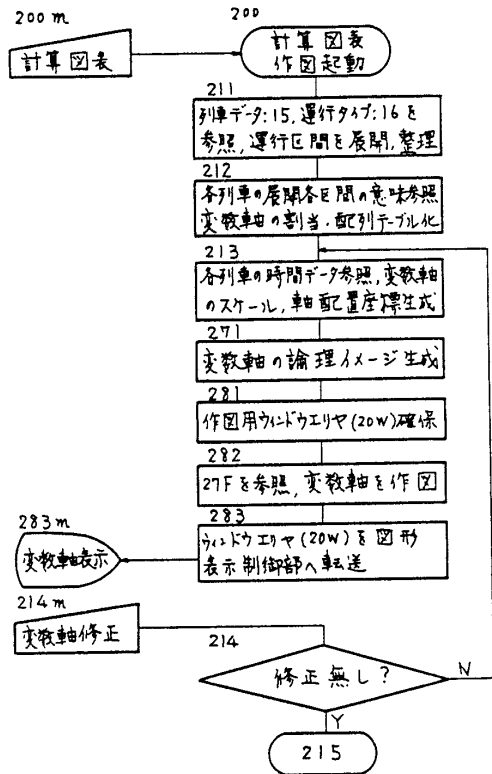 200m
200
計算図表
計算図表
作図起動
211
列車データ:15,運行タイプ:16を
参照,運行区間を展開,整理
212
各列車の展開各区間の意味参照
変数軸の割当・配列テーブル化
213
各列車の時間データ参照,変数軸
のスケール,軸配置座標生成
271
変数軸の論理イメージ生成
281
作図用ウィンドウエリヤ(20W)確保
282
27Fを参照,変数軸を作図
283m
283
変数軸表示
ウィンドウエリヤ(20W)を図形
表示制御部へ転送
214m
変数軸修正
214
修正無し?
N
Y
215